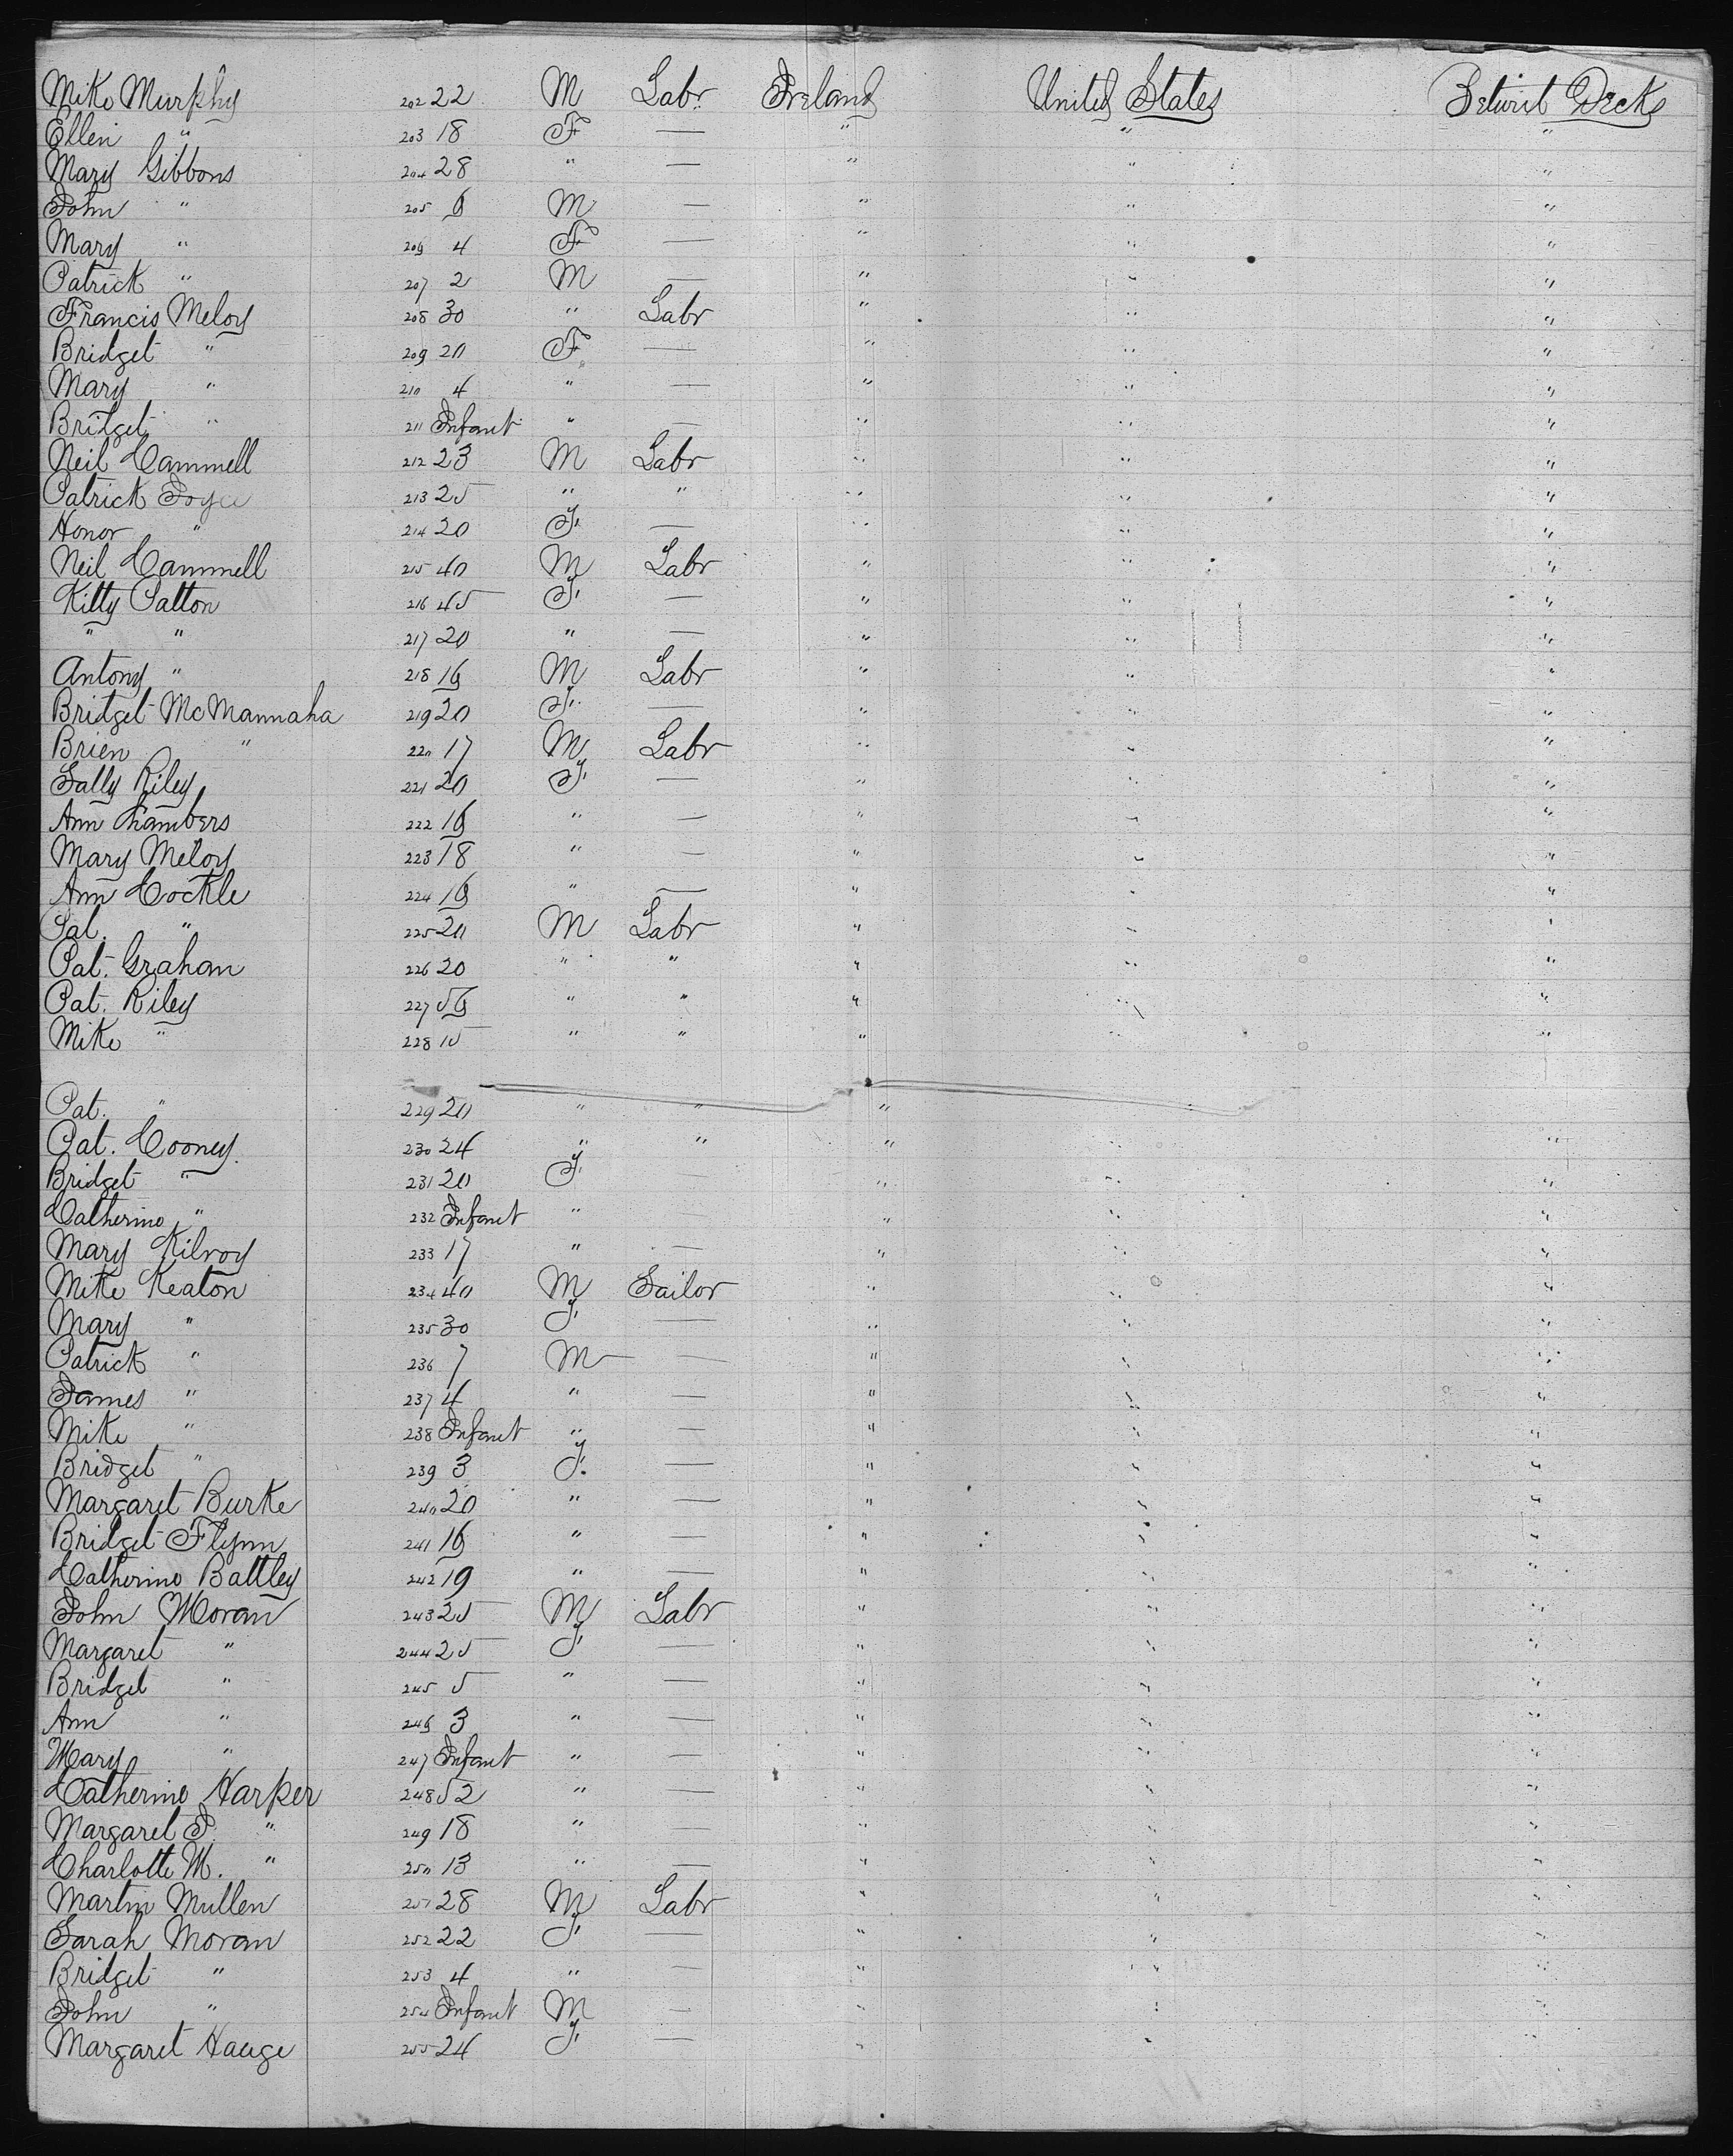 Mike Murphy 202 22 M Labr. Ireland United States Betwixt Decks
Ellen " 203 18 F — " " "
Mary Gibbons 204 28 " — " " "
John " 205 6 M — " " "
Mary " 206 4 F — " " "
Patrick " 207 2 M — " " "
Francis Meloy 208 30 " Labr " " "
Bridget " 209 20 F — " " "
Mary " 210 4 " — " " "
Bridget " 211 Infant " — " " "
Neil Cammell 212 23 M Labr " " "
Patrick Joyce 213 25 " " " " "
Honor " 214 20 F. — " " "
Neil Cammell 215 40 M Labr " " "
Kitty Patton 216 45 F. — " " "
" " 217 20 " — " " "
Antony " 218 16 M Labr " " "
Bridget McMannaha 219 20 F. — " " "
Brien " 220 17 M Labr " " "
Sally Riley 221 20 F. — " " "
Ann Chambers 222 16 " — " " "
Mary Meloy 223 18 " — " " "
Ann Cockle 224 16 " — " " "
Pat. " 225 20 M Labr " " "
Pat. Graham 226 20 " " " " "
Pat. Riley 227 56 " " " " "
Mike " 228 15 " " " " "
Pat. " 229 20 " " " "
Pat. Cooney. 230 24 " " " " "
Bridget " 231 20 F. — " " "
Catherine " 232 Infant " — " " "
Mary Kilroy 233 17 " — " " "
Mike Keaton 234 40 M Sailor " " "
Mary " 235 30 F. — " " "
Patrick " 236 7 M — " " "
James " 237 4 " — " " "
Mike " 238 Infant " — " " "
Bridget " 239 3 F. — " " "
Margaret Burke 240 20 " — " " "
Bridget Flynn 241 16 " — " " "
Catherine Battley 242 19 " — " " "
John Moran 243 25 M Labr " " "
Margaret " 244 25 F. — " " "
Bridget " 245 5 " — " " "
Ann " 246 3 " — " " "
Mary " 247 Infant " — " " "
Catherine Harper 248 52 " — " " "
Margaret P. " 249 18 " — " " "
Charlotte M. " 250 13 " — " " "
Martin Mullen 251 28 M Labr " " "
Sarah Moran 252 22 F. — " " "
Bridget " 253 4 " — " " "
John " 254 Infant M — " " "
Margaret Hauge 255 24 F. — " " "